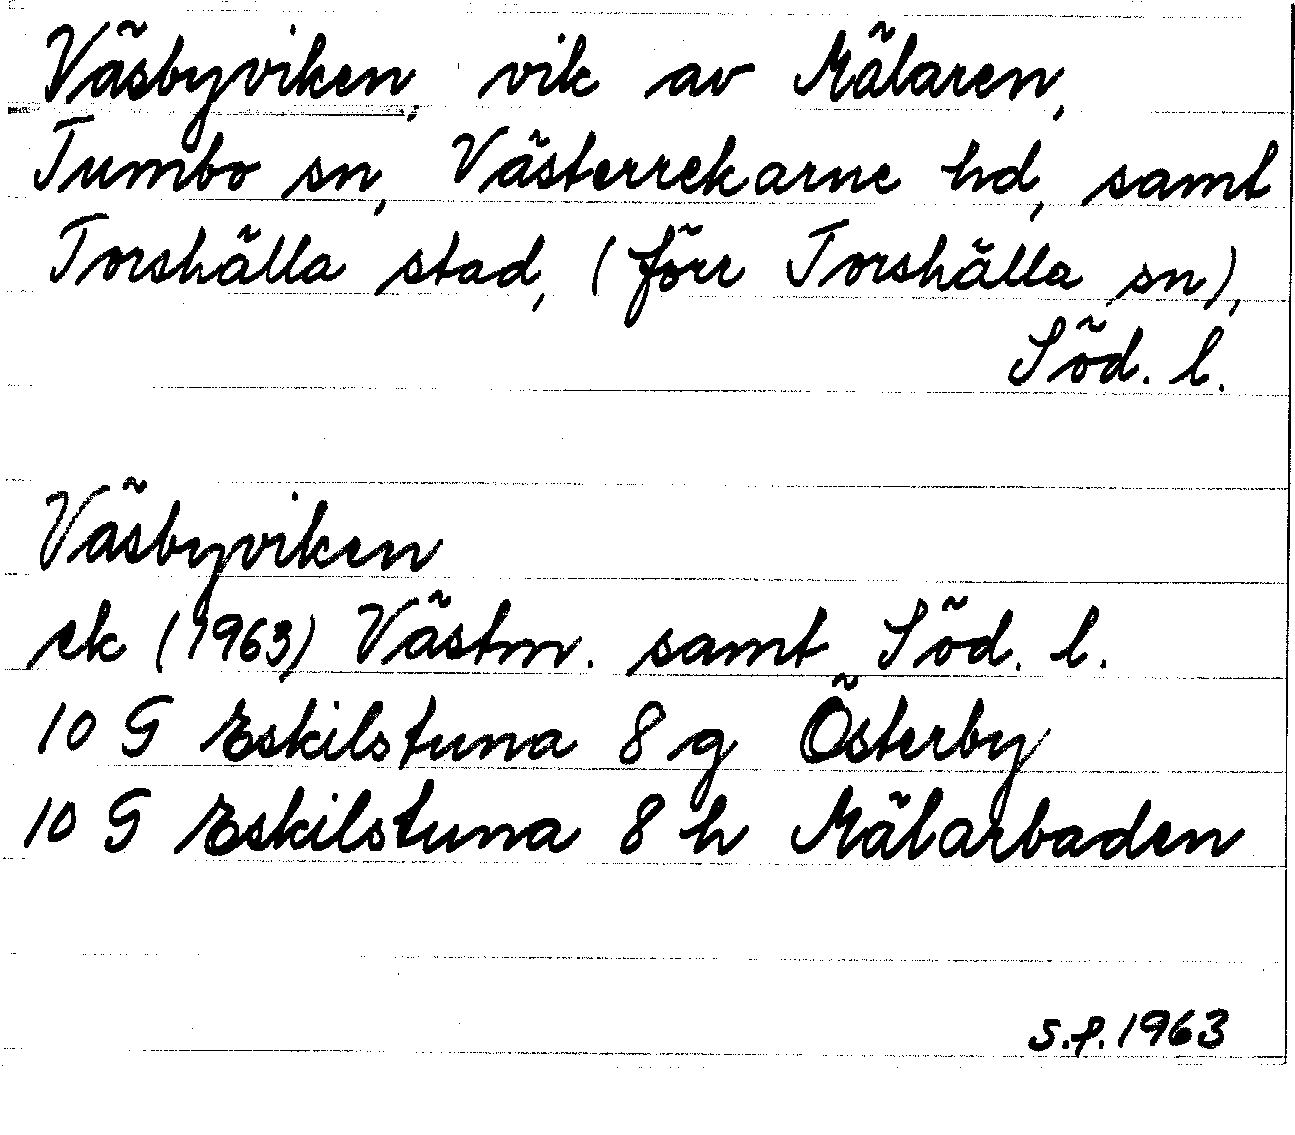 Väsbyviken, vik av Mälaren,
Tumbo sn, Västerrekarne hd, samt
Torshälla stad, (förr Torshälla sn),
Söd. l.
Väsbyviken
ek (1963) Västm. samt Söd. l.
10 G Eskilstuna 8 g Österby
10 G Eskilstuna 8 h Mälarbaden
S.f. 1963